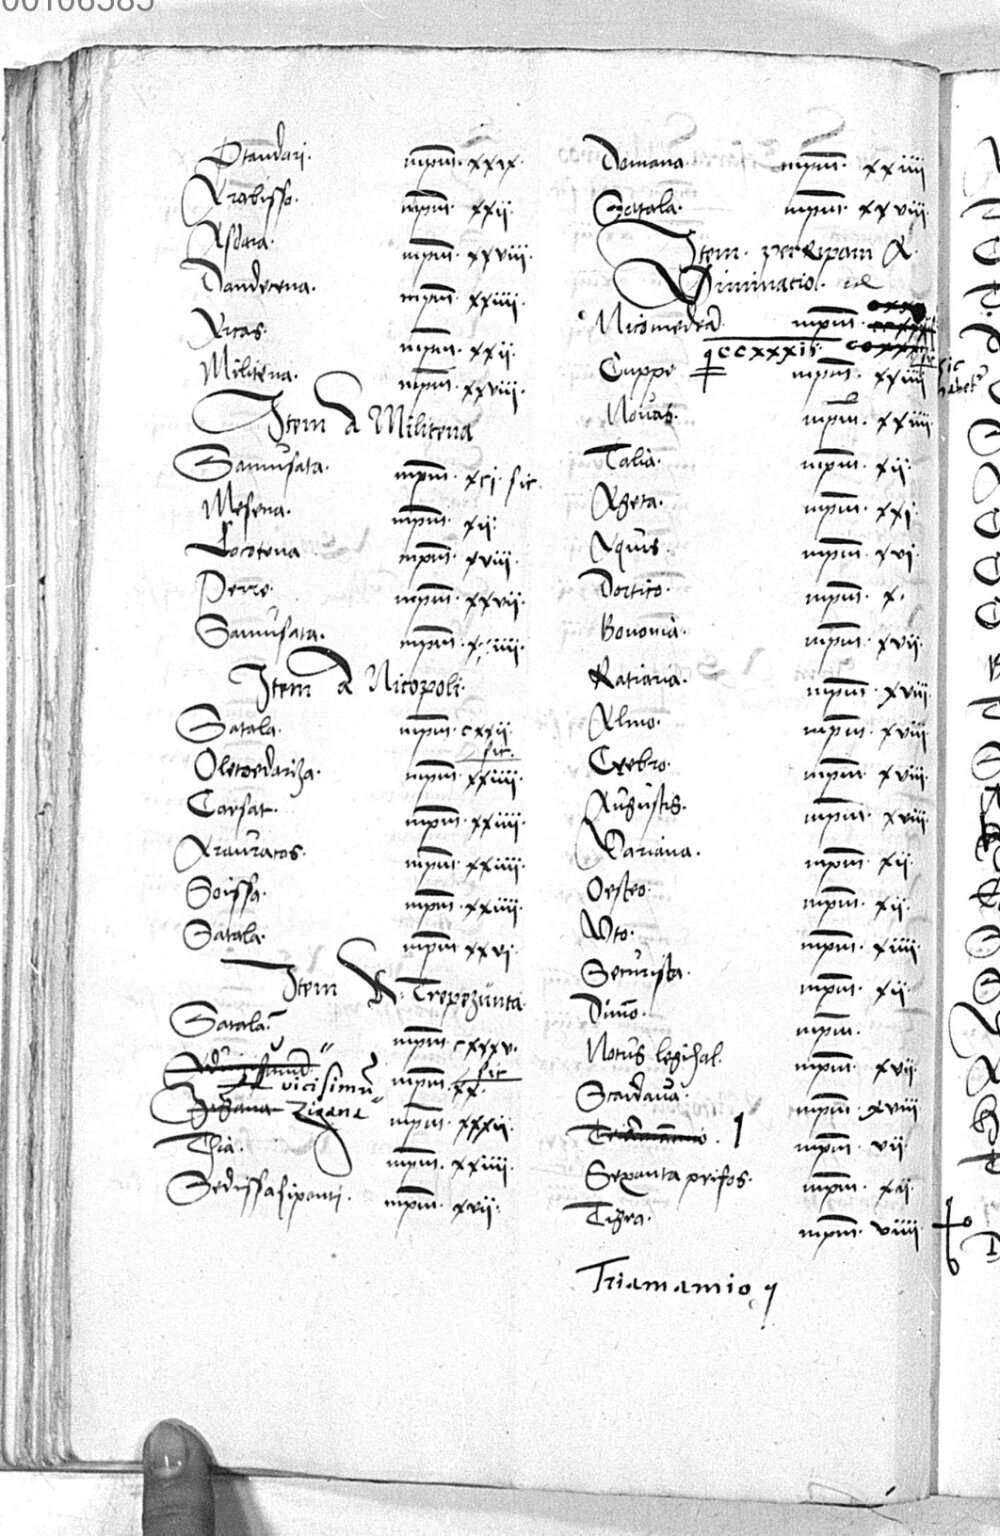 00106585
Ptandari. mpm. xxix.
Arabisso. mpm. xxii.
Asdara. mpm. xxviii.
Dandexena. mpm. xxiiii.
Arcas. mpm. xxii.
Militena. mpm. xxviii.
Item A Militena
Samusata. mpm. xci. sic.
Mesena. mpm. xii.
Locotena mpm. xviii.
Perre. mpm. xxvii.
Samusata. mpm.
Item A Nicopoli.
Satala. mpm. cxxii.
sic.
Oletoedariza. mpm. xxiiii.
Carsat. mpm. xxiiii.
Arauracos. mpm. xxiiii.
Soissa. mpm. xxiiii.
Satala. mpm. xxvi.
Item A. Trepezunta.
Satala. mpm. cxxxv.
sic
vicisimum mpm. xx.
Zigana Zigana mpm. xxxii.
Thia. mpm. xxiiii.
Sedissasiponti. mpm. xvii.
Domana. mpm. xxiiii
Satala. mpm. xxviii.
Item. per Ripam A.
Viminacio.
Nicomedia. mpm.
ccxxxii.
Cuppe mpm. xxiiii
sic habet
Novas. mpm. xxiiii.
Talia. mpm. xii.
Ageta. mpm. xxi.
Aquis. mpm. xvi.
Dortico. mpm. x.
Bononia. mpm. xvii.
Ratiaria. mpm. xviii.
Almo. mpm. xviii.
Cebro. mpm. xviii.
Augustis. mpm. xviii.
Variana. mpm. xii.
Oesteo. mpm. xii.
Uto. mpm. xiiii.
Securista. mpm. xii.
Dimo. mpm.
Notus legihal. mpm. xvii.
Scaidava. mpm. xviii.
Trimamio. mpm. vii.
Sexanta prifos. mpm. xii.
Tigra. mpm. viiii.
Triamamio